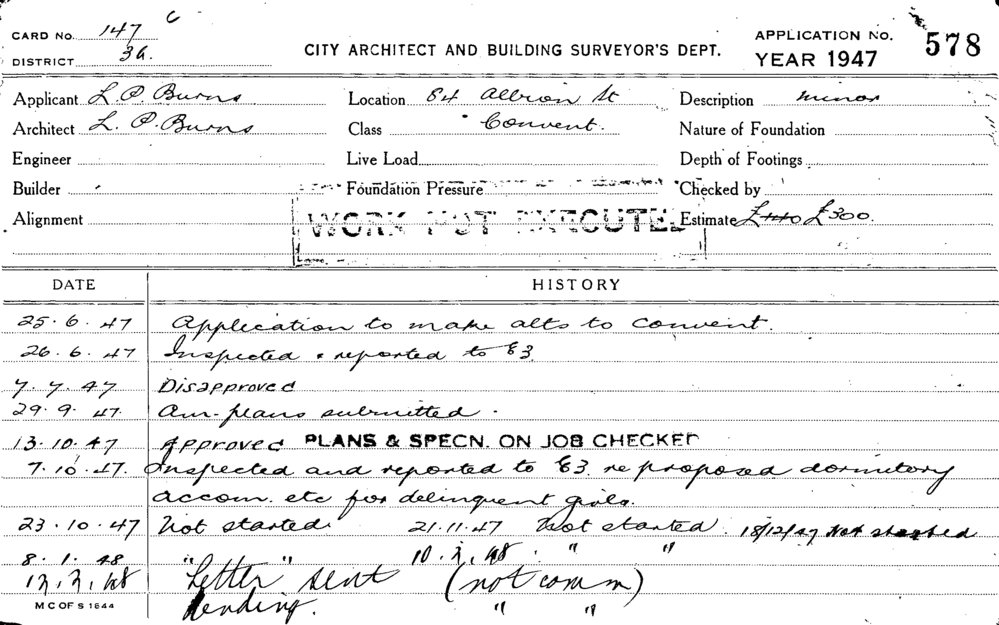 CARD NO. 147 C
DISTRICT 3a.
CITY ARCHITECT AND BUILDING SURVEYOR'S DEPT.
APPLICATION NO. 578
YEAR 1947
Applicant L. P. Burns Location 84 Albion St Description minor
Architect L. P. Burns Class Convent. Nature of Foundation
Engineer Live Load Depth of Footings
Builder Foundation Pressure Checked by
Alignment WORK NOT EXECUTED Estimate £440 £300.
DATE HISTORY
25.6.47 Application to make alts to convent.
26.6.47 Inspected & reported to E3
7.7.47 Disapproved
29.9.47. Am. plans submitted.
13.10.47 Approved PLANS & SPECN. ON JOB CHECKED
7.10.47. Inspected and reported to E3. re proposed dormitory
accom. etc for delinquent girls.
23.10.47 Not started. 21.11.47 Not started. 18/12/47 Not started
8.1.48 " " 10.2.48. " "
12.2.48 Letter sent (not comm)
Pending. " "
M C OF S 1644